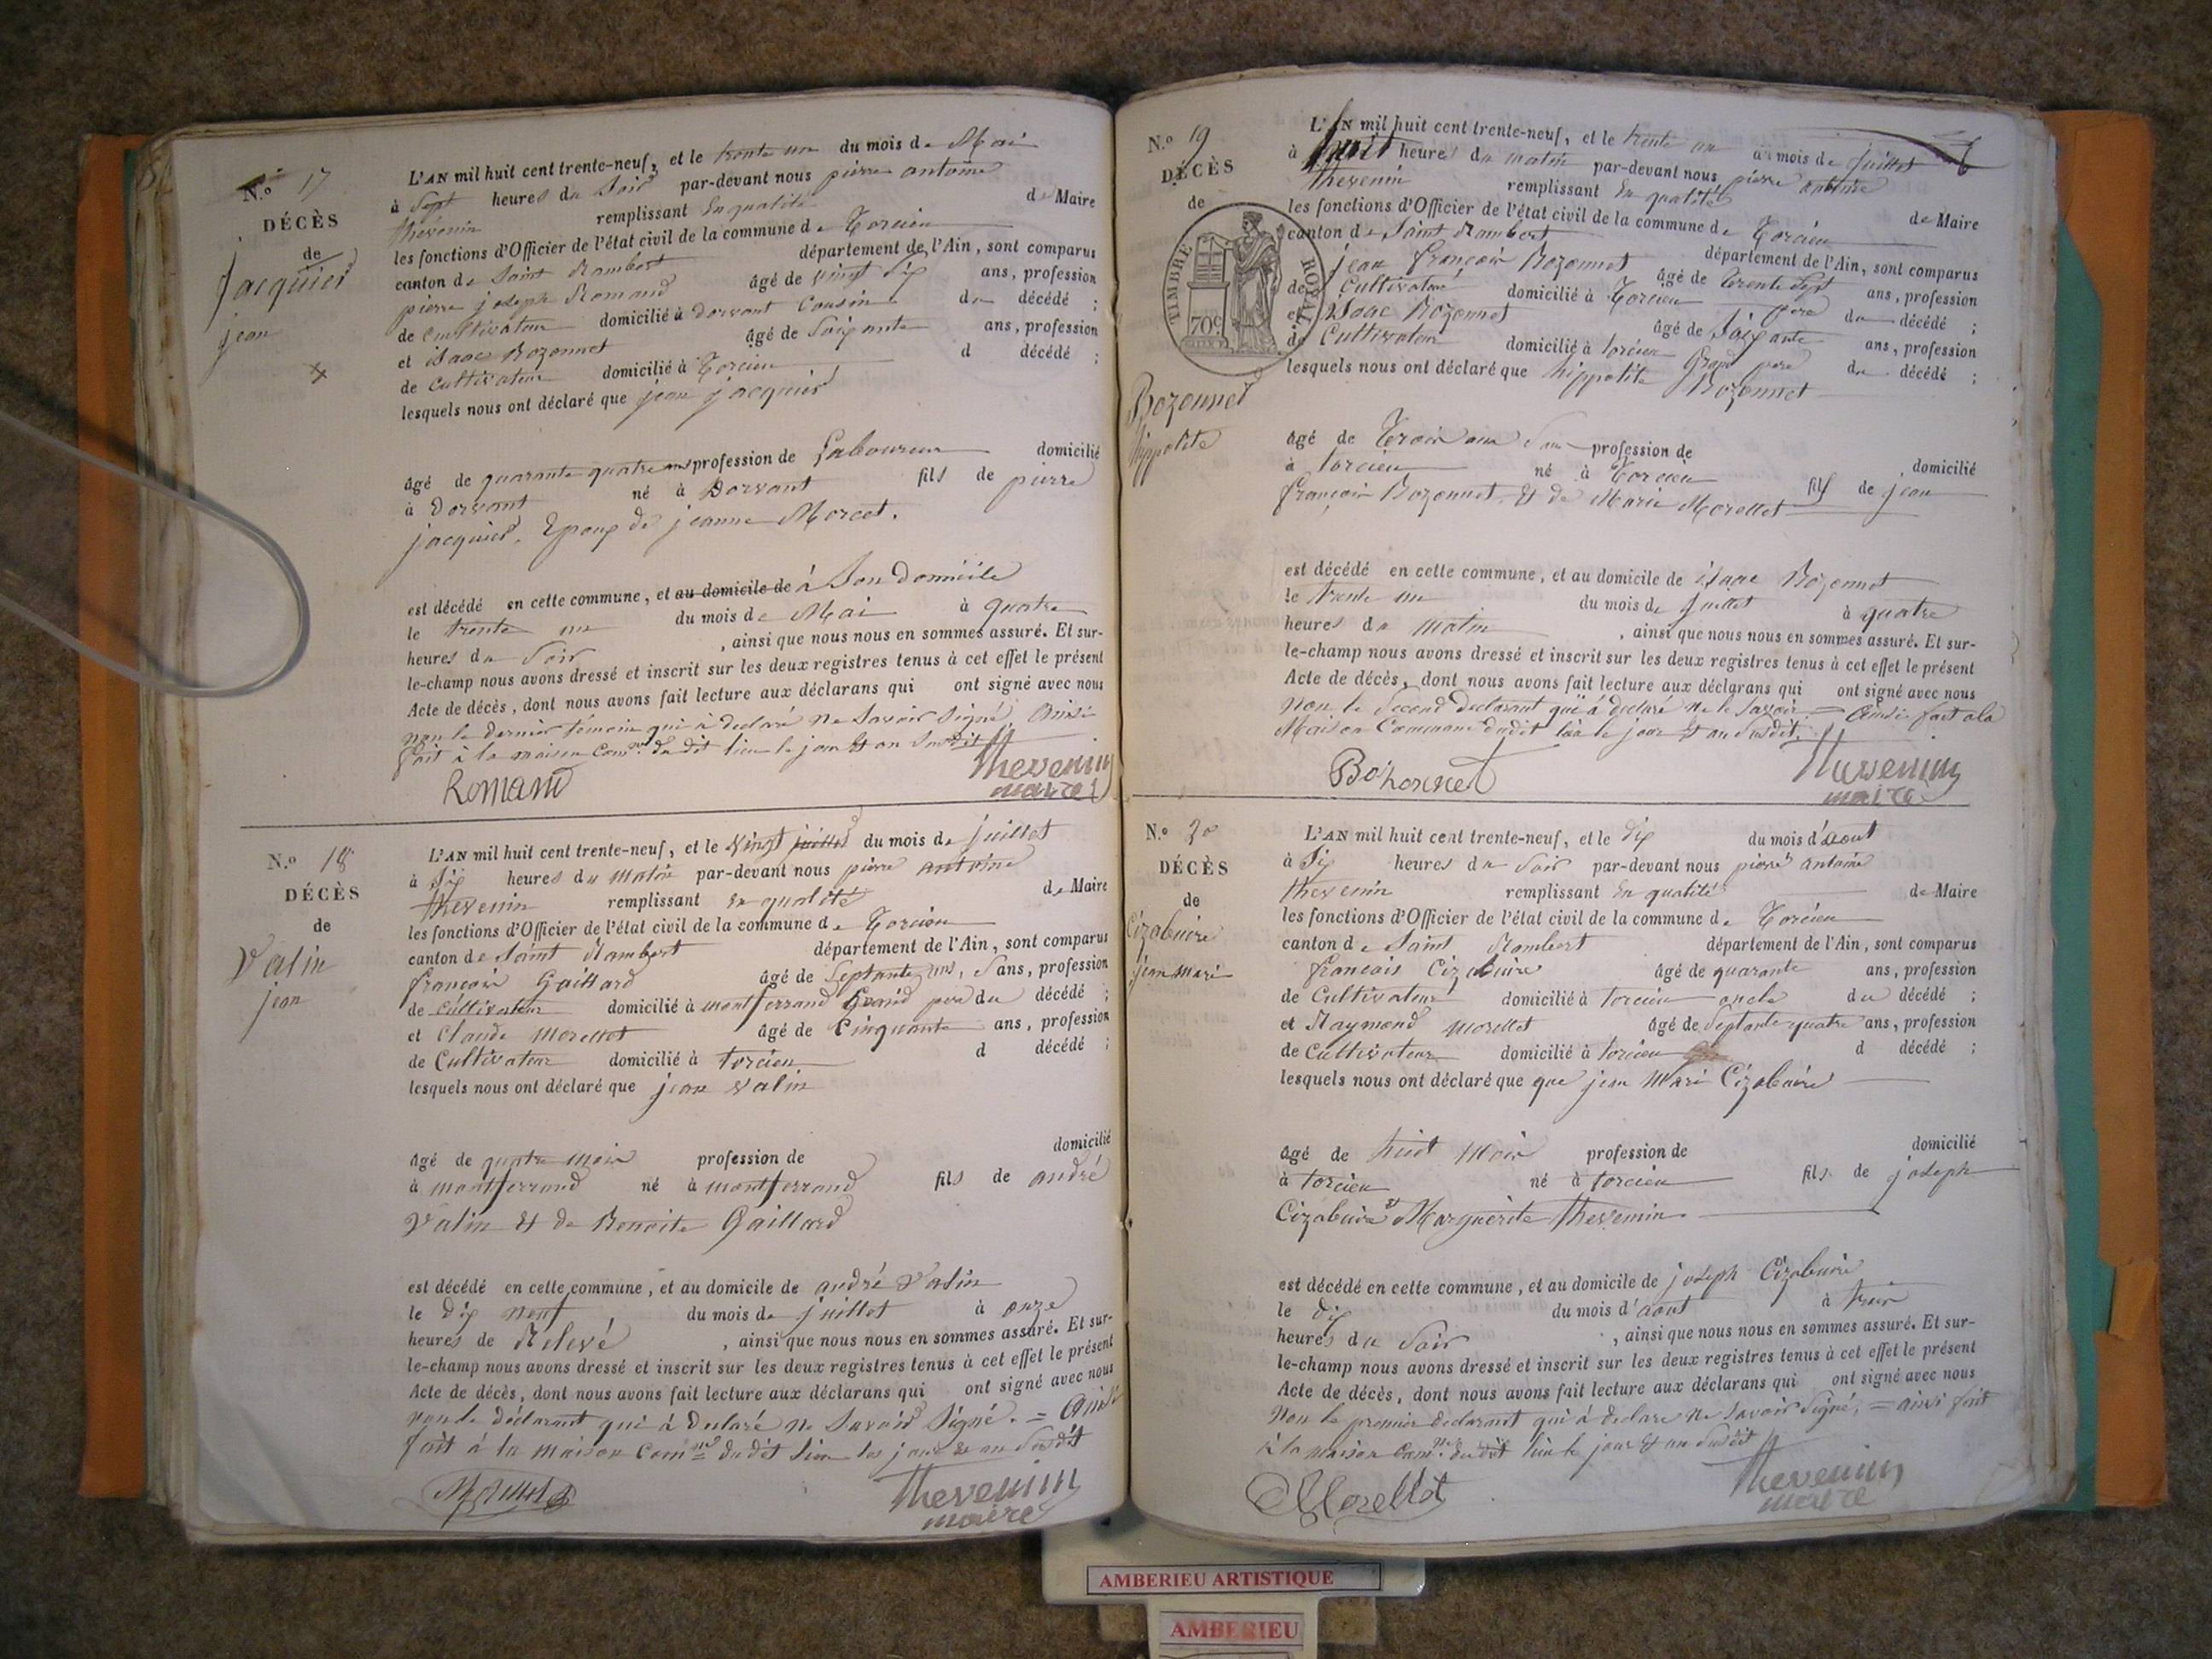 N.o 17
DÉCÈS
de
Jacquier
jean
L'AN mil huit cent trente-neuf, et le trente un du mois de Mai
à Sept heures du Soir par-devant nous pierre antoine
thévenin remplissant En qualité de Maire
les fonctions d'Officier de l'état civil de la commune de Torcieu
canton de Saint Rambert département de l'Ain, sont comparus
pierre joseph Romand âgé de vingt Six ans, profession
de Cultivateur domicilié à Dorvant Cousin du décédé ;
et isaac Bozonnet âgé de Soixante ans, profession
de Cultivateur domicilié à Torcieu d décédé ;
lesquels nous ont déclaré que jean jacquier
âgé de quarante quatre ans profession de Laboureur domicilié
à Dorvant né à Dorvant fils de pierre
jacquier. Epoux de jeanne Morcet.
est décédé en cette commune, et au domicile de à Son Domicile
le trente un du mois de Mai à quatre
heures du Soir , ainsi que nous nous en sommes assuré. Et sur-
le-champ nous avons dressé et inscrit sur les deux registres tenus à cet effet le présent
Acte de décès, dont nous avons fait lecture aux déclarans qui ont signé avec nous
non le dernier témoin qui à declaré ne Savoir Signé. Ainsi
fait à la maison Comne du dit lieu le jour Et an Susdit
Romand Thevenin
maire
N.o 18
DÉCÈS
de
Valin
jean
L'AN mil huit cent trente-neuf, et le Vingt juillet du mois de juillet
à Six heures du Matin par-devant nous pierre antoine
thevenin remplissant En qualité de Maire
les fonctions d'Officier de l'état civil de la commune de Torcieu
canton de Saint Rambert département de l'Ain, sont comparus
françois Gaillard âgé de Septante ans, profession
de Cultivateur domicilié à montferrand Grand pere du décédé ;
et Claude Morellet âgé de Cinquante ans, profession
de Cultivateur domicilié à torcieu d décédé ;
lesquels nous ont déclaré que jean Valin
âgé de quatre mois profession de domicilié
à montferrand né à montferrand fils de andré
Valin Et de Benoite Gaillard
est décédé en cette commune, et au domicile de andré Valin
le Dix neuf du mois de juillet à onze
heures de Relevé , ainsi que nous nous en sommes assuré. Et sur-
le-champ nous avons dressé et inscrit sur les deux registres tenus à cet effet le présent
Acte de décès, dont nous avons fait lecture aux déclarans qui ont signé avec nous
non le déclarant qui à declaré ne Savoir Signé. = Ainsi
fait à la maison Comne du dit lieu les jour Et an Susdit
Thevenin
maire
N.o 19
DÉCÈS
de
TIMBRE ROYAL
70c
Bozonnet
hippolite
L'AN mil huit cent trente-neuf, et le trente un du mois de juillet
à huit heures du matin par-devant nous pierre antoine
thevenin remplissant En qualité de Maire
les fonctions d'Officier de l'état civil de la commune de Torcieu
canton de Saint Rambert département de l'Ain, sont comparus
jean françois Bozonnet âgé de trente Sept ans, profession
de Cultivateur domicilié à Torcieu pere du décédé ;
et isaac Bozonnet âgé de Soixante ans, profession
de Cultivateur domicilié à torcieu Grand pere du décédé ;
lesquels nous ont déclaré que hippolite Bozonnet
âgé de Trois ans profession de domicilié
à torcieu né à Torcieu fils de jean
françois Bozonnet Et de Marie Morellet
est décédé en cette commune, et au domicile de isaac Bozonnet
le trente un du mois de juillet à quatre
heures du matin , ainsi que nous nous en sommes assuré. Et sur-
le-champ nous avons dressé et inscrit sur les deux registres tenus à cet effet le présent
Acte de décès, dont nous avons fait lecture aux déclarans qui ont signé avec nous
non le Second declarant qui à declaré ne le Savoir. = Ainsi fait a la
Maison Commune dudit lieu le jour Et an Susdit.
Bozonnet Thevenin
maire
N.o 20
DÉCÈS
de
Cizabuire
jean Marie
L'AN mil huit cent trente-neuf, et le Dix du mois d'aout
à Six heures du Soir par-devant nous pierre antoine
thevenin remplissant En qualité de Maire
les fonctions d'Officier de l'état civil de la commune de Torcieu
canton de Saint Rambert département de l'Ain, sont comparus
francois Cizabuire âgé de quarante ans, profession
de Cultivateur domicilié à torcieu oncle du décédé ;
et Raymond Morellet âgé de Septante quatre ans, profession
de Cultivateur domicilié à torcieu d décédé ;
lesquels nous ont déclaré que que jean Marie Cizabuire
âgé de huit Mois profession de domicilié
à torcieu né à torcieu fils de joseph
Cizabuire et Marguerite thevenin.
est décédé en cette commune, et au domicile de joseph Cizabuire
le Dix du mois d'aout à trois
heures du Soir , ainsi que nous nous en sommes assuré. Et sur-
le-champ nous avons dressé et inscrit sur les deux registres tenus à cet effet le présent
Acte de décès, dont nous avons fait lecture aux déclarans qui ont signé avec nous
Non le premier declarant qui à declare ne Savoir Signé. = ainsi fait
à la maison Comne dudit lieu le jour Et an Susdit
Morellet Thevenin
maire
AMBERIEU ARTISTIQUE
AMBERIEU